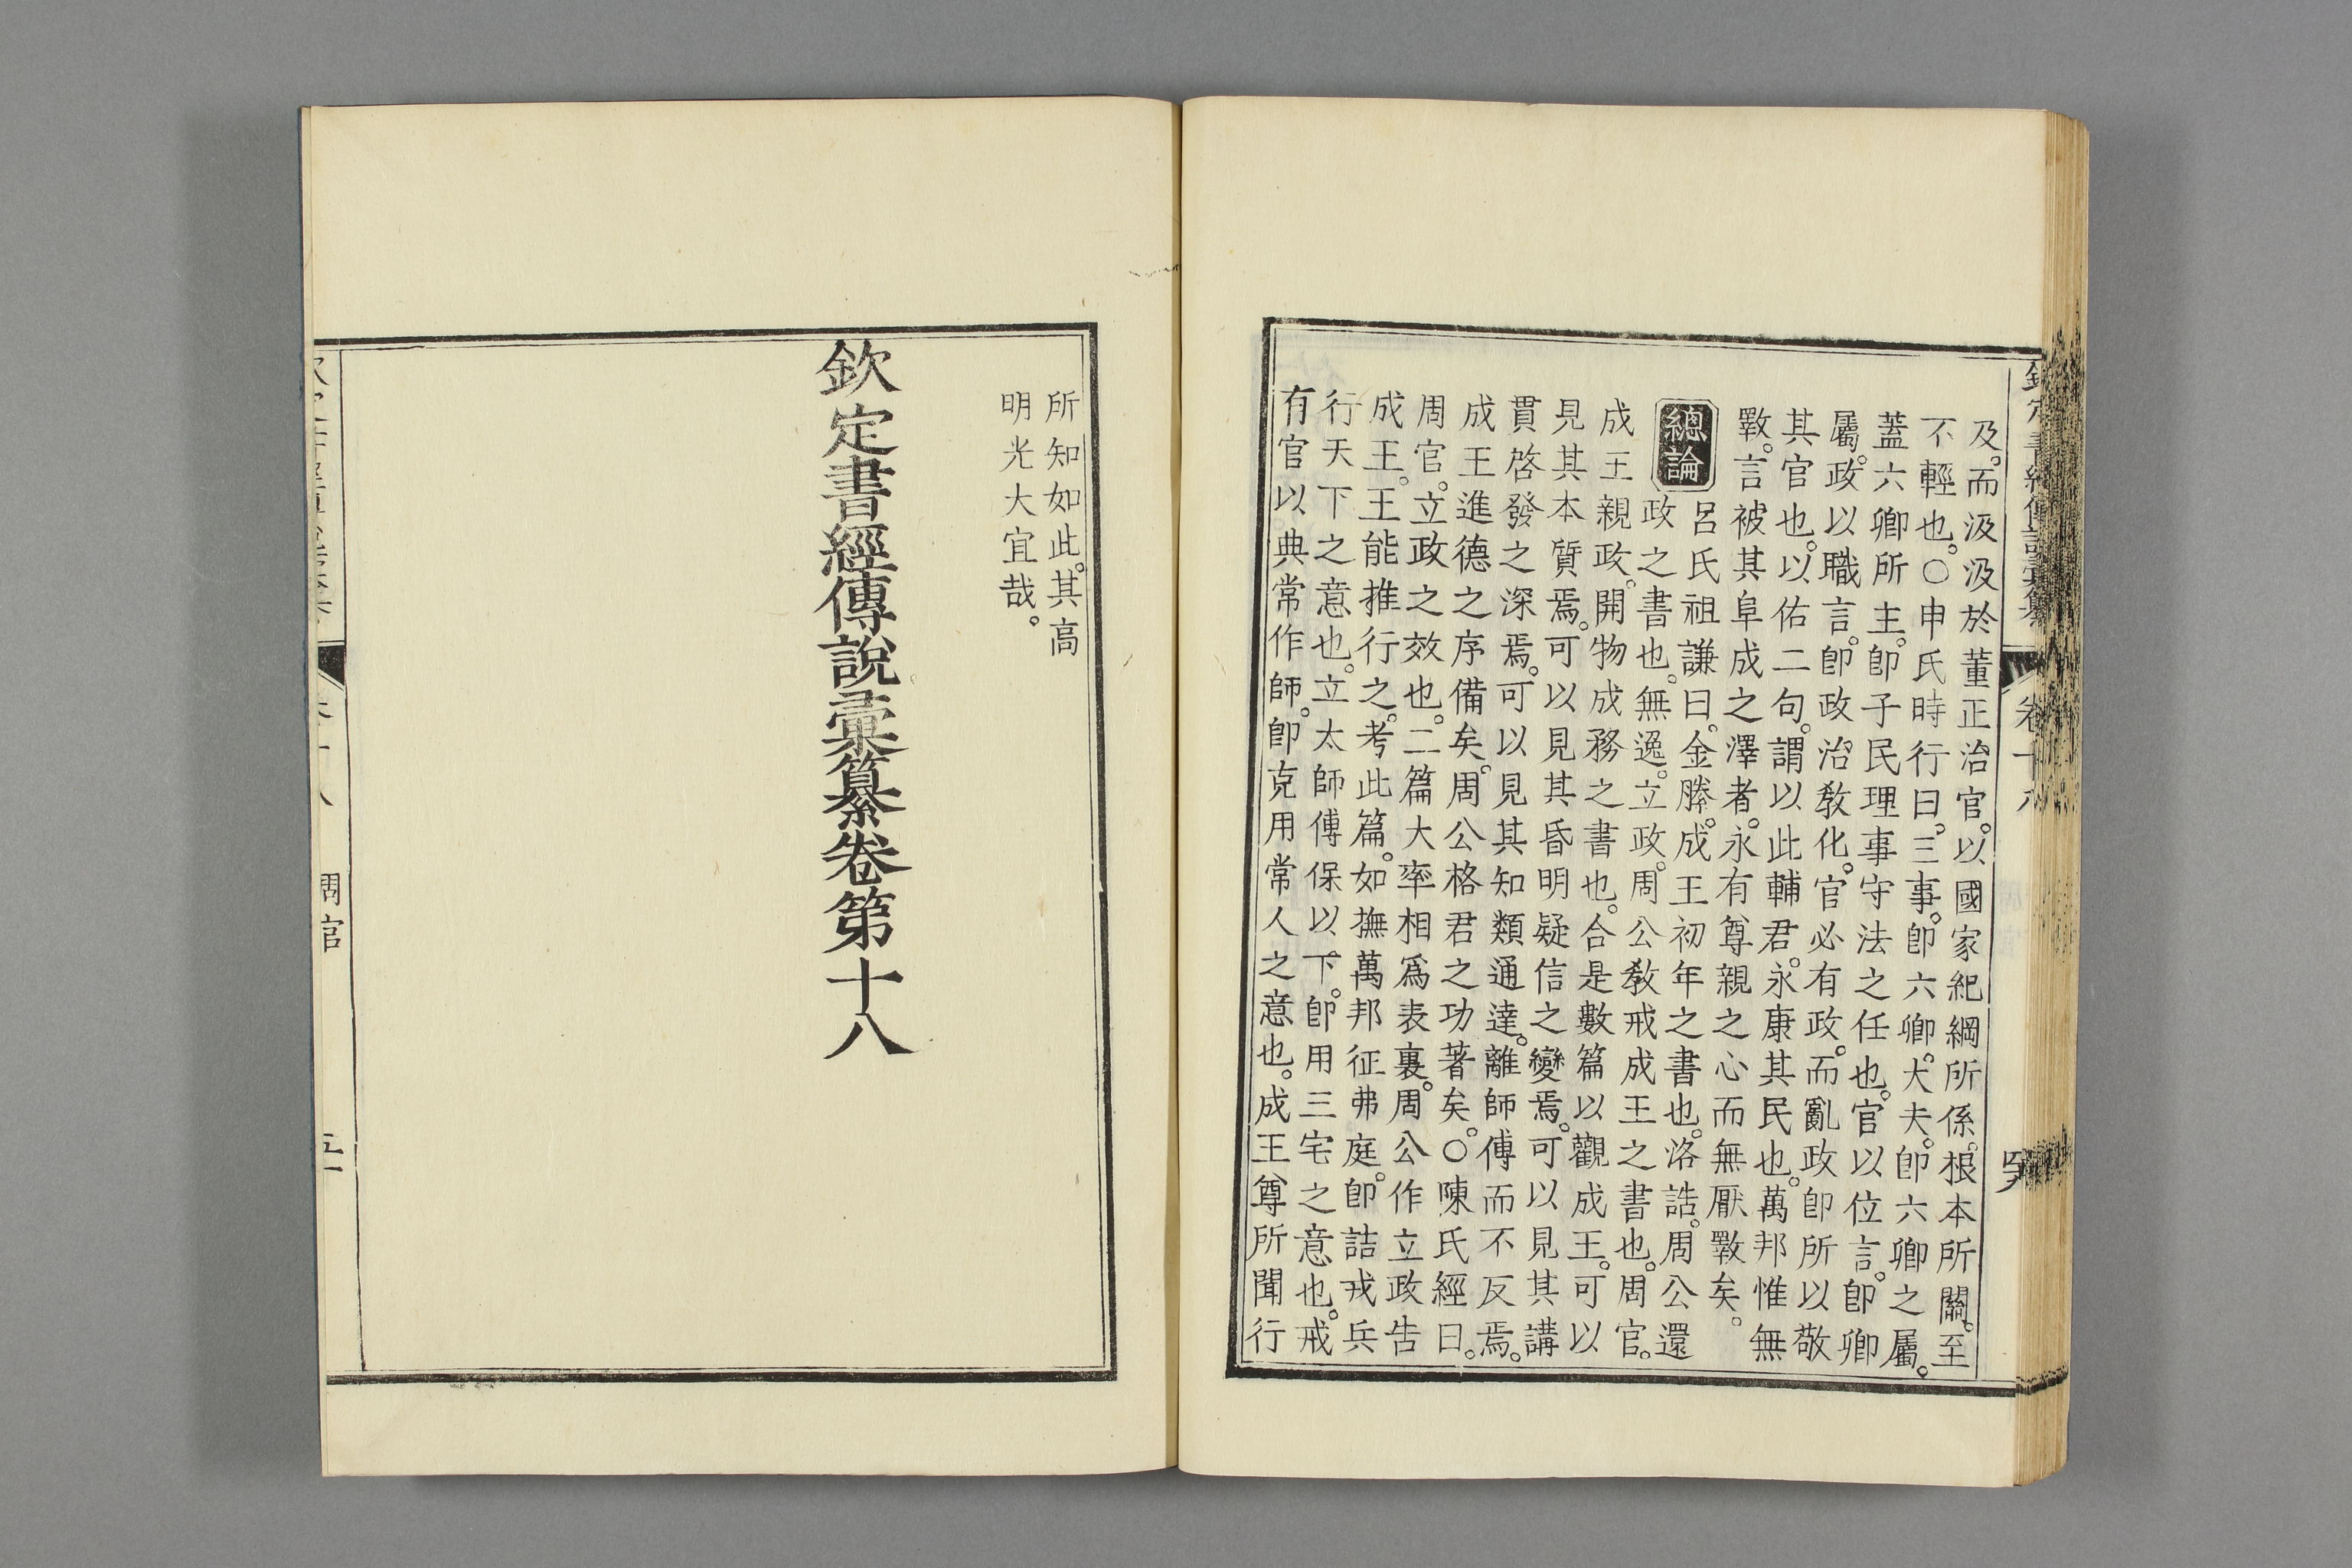 欽定書經傳說彙纂 卷十八
及。而汲汲於董正治官。以國家紀綱所係。根本所關。至
不輕也。○申氏時行曰。三事。卽六卿。大夫。卽六卿之屬。
蓋六卿所主。卽子民理事守法之任也。官以位言。卽卿
屬。政以職言。卽政治敎化。官必有政。而亂政卽所以敬
其官也。以佑二句。謂以此輔君。永康其民也。萬邦惟無
斁。言被其阜成之澤者。永有尊親之心而無厭斁矣。
總論 呂氏祖謙曰。金縢。成王初年之書也。洛誥。周公還
政之書也。無逸。立政。周公敎戒成王之書也。周官。
成王親政。開物成務之書也。合是數篇以觀成王。可以
見其本質焉。可以見其昏明疑信之變焉。可以見其講
貫啓發之深焉。可以見其知類通達。離師傅而不反焉。
成王進德之序備矣。周公格君之功著矣。○陳氏經曰。
周官。立政之效也。二篇大率相爲表裏。周公作立政告
成王。王能推行之。考此篇。如撫萬邦征弗庭。卽詰戎兵
行天下之意也。立太師傅保以下。卽用三宅之意也。戒
有官以典常作師。卽克用常人之意也。成王尊所聞行
所知如此。其高
明光大宜哉。
欽定書經傳說彙纂卷第十八
周官